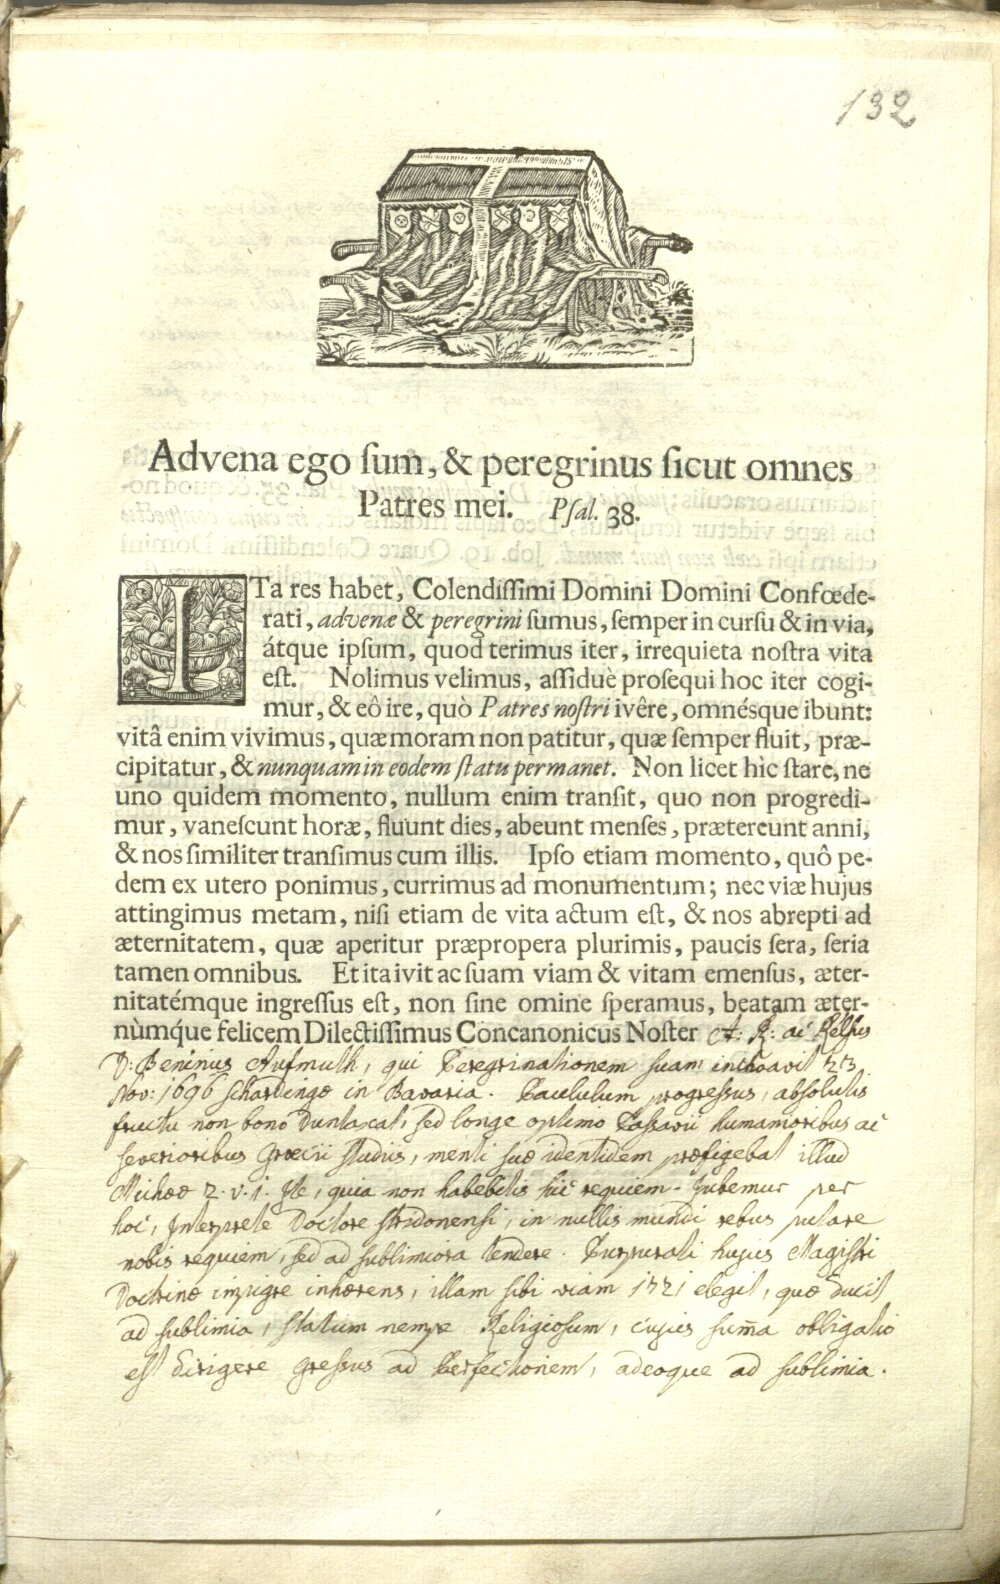 132
Advena ego ſum, & peregrinus ſicut omnes
Patres mei. Pſal. 38.
ITa res habet, Colendiſſimi Domini Domini Confœde-
rati, advenæ & peregrini ſumus, ſemper in curſu & in via,
átque ipſum, quod terimus iter, irrequieta noſtra vita
eſt. Nolimus velimus, aſſiduè proſequi hoc iter cogi-
mur, & eô ire, quò Patres noſtri ivêre, omnésque ibunt:
vitâ enim vivimus, quæ moram non patitur, quæ ſemper fluit, præ-
cipitatur, & nunquam in eodem ſtatu permanet. Non licet hîc ſtare, ne
uno quidem momento, nullum enim tranſit, quo non progredi-
mur, vaneſcunt horæ, fluunt dies, abeunt menſes, prætereunt anni,
& nos ſimiliter tranſimus cum illis. Ipſo etiam momento, quô pe-
dem ex utero ponimus, currimus ad monumentum; nec viæ hujus
attingimus metam, niſi etiam de vita actum eſt, & nos abrepti ad
æternitatem, quæ aperitur præpropera plurimis, paucis ſera, ſeria
tamen omnibus. Et ita ivit ac ſuam viam & vitam emenſus, æter-
nitatémque ingreſſus eſt, non ſine omine ſperamus, beatam æter-
nùmq́ue felicem Dilectiſſimus Concanonicus Noſter A: R: ac Relſus
D: Beninus Aufmuth, qui Peregrinationem suam inchoavit 23
Nov: 1696 Schardingæ in Bavaria. Paululum progressus, absolutis
fructu non bono duntaxat, sed longe optimo Passavii humanioribus ac
severioribus Græcii studiis, menti suæ identidem præfigebat illud
Michææ 2. v. 1. Ite, quia non habebitis hic requiem. Jubemur per
hoc, Interprete Doctore Stridonensi, in nullis mundi rebus putare
nobis requiem, sed ad sublimiora tendere. Purpurati hujus Magistri
Doctrinæ impigre inhærens, illam sibi viam 1721 elegit, quæ ducit
ad sublimia, statum nempe Religiosum, cujus sum̄a obligatio
est dirigere gressus ad Perfectionem, adeoque ad sublimia.